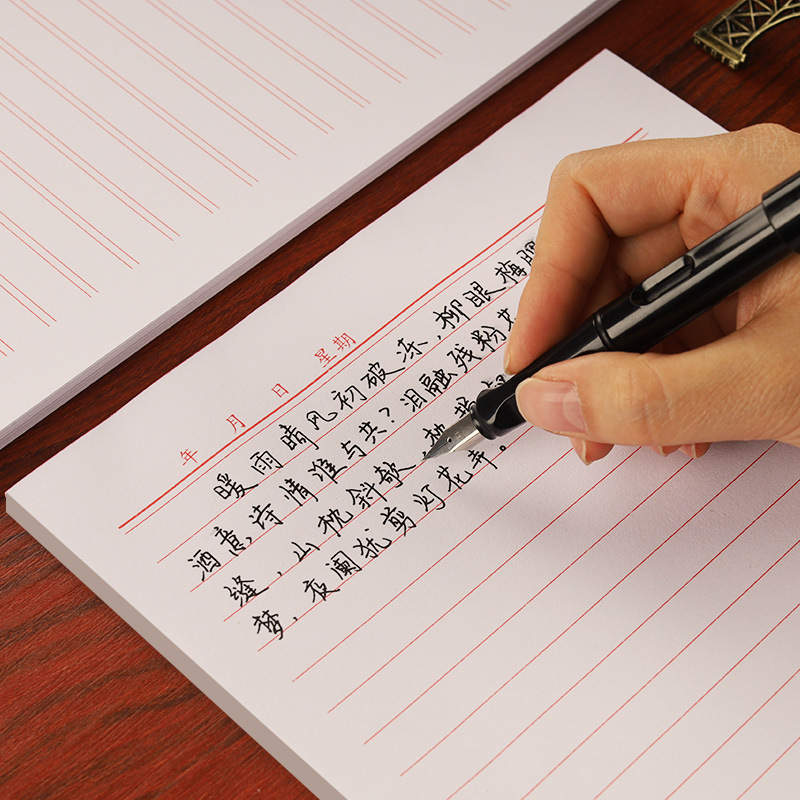 年 月 日 星期
暖雨晴风初破冻,柳眼梅
酒意诗情谁与共?泪融残粉
缝,山枕斜欹,枕损
梦,夜阑犹剪灯花弄。